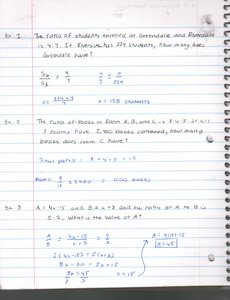 Ex. 1 The ratio of students enrolled at Greendale and Riverdale
is 4:7. If Riverside has 224 students, how many does
Greendale have?
4/7 = x/224
x = 128 students
Ex. 2 The ratio of books in Room A, B, and C is
3 rooms have 2,400 books combined, how many
books does room C have?
Room C: × 2400 = books
Ex. 3 A = 4x-15 and B = x+3 and the ratio of A to B is
5:2, what is the value of A?
A/B = 4x-15/x+3 = 5/2
2(4x-15) = 5(x+3)
8x-30 = 5x+15
3x = 45
x = 15
A = 4(15)-15
A = 45